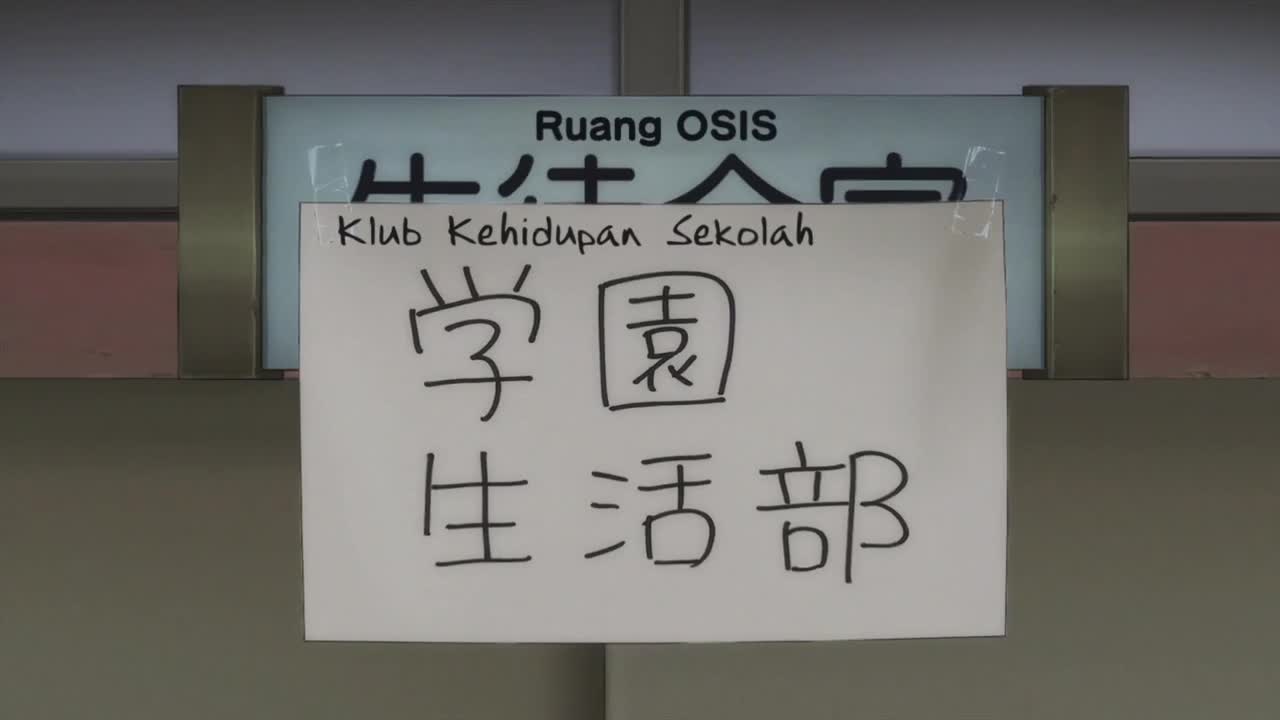 Ruang OSIS
生徒会室
Klub Kehidupan Sekolah
学園
生活部